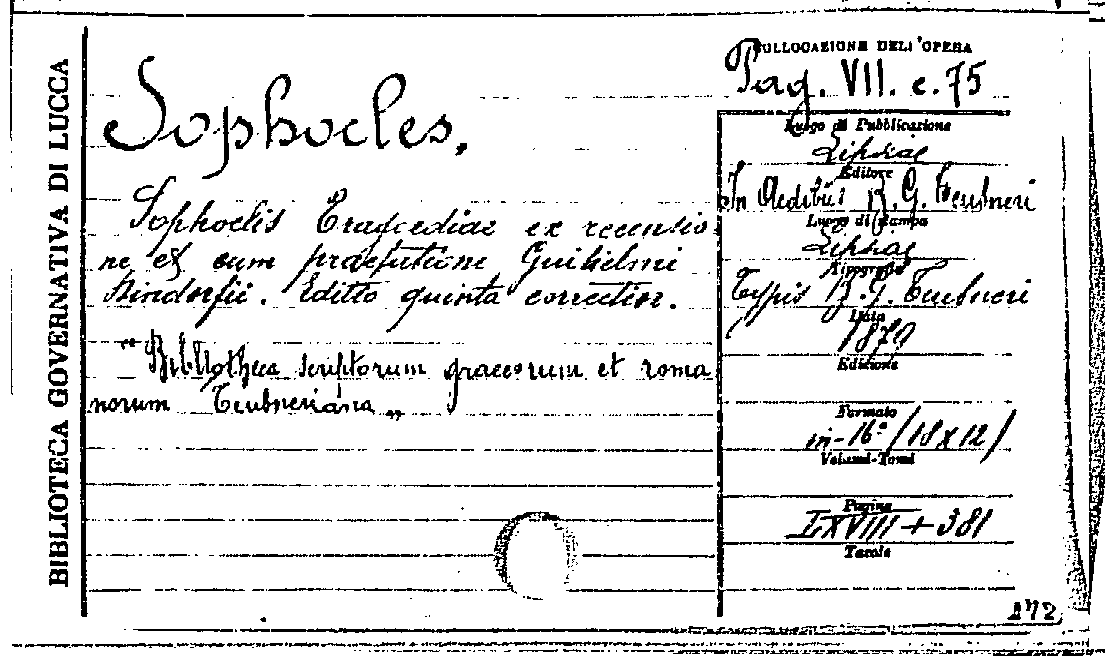 BIBLIOTECA GOVERNATIVA DI LUCCA
Sophocles.
Sophoclis Tragoediae ex recensio
ne et cum praefatione Guilielmi
Dindorfii. Editio quinta correctior.
"Bibliotheca scriptorum graecorum et roma
norum Teubneriana„
COLLOCAZIONE DELL'OPERA
Pag. VII. c. 75
Luogo di Pubblicazione
Lipsiae
Editore
In Aedibus B. G. Teubneri
Luogo di stampa
Lipsiae
Tipografo
Typis B. G. Teubneri
Data
1879
Edizione
Formato
in-16° (18x12)
Volumi-Tomi
Pagine
LXVIII + 381
Tavole
172